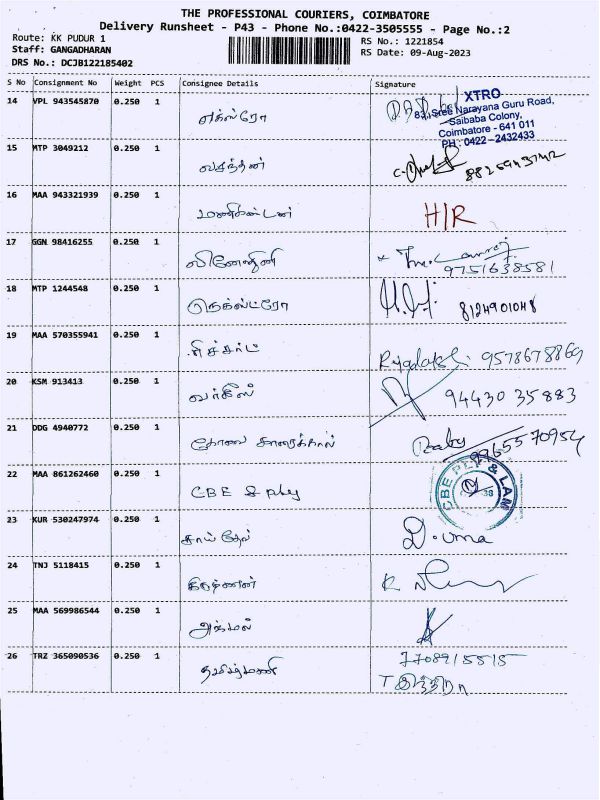 THE PROFESSIONAL COURIERS, COIMBATORE
Delivery Runsheet - P43 - Phone No.:0422-3505555 - Page No.:2
Route: KK PUDUR 1
RS No.: 1221854
Staff: GANGADHARAN
RS Date: 09-Aug-2023
DRS No.: DCJB122185402
S No Consignment No Weight PCS Consignee Details Signature
14 VPL 943545870 0.250 1
XTRO
Sree Narayana Guru Road,
Saibaba Colony,
Coimbatore - 641 011
PH : 0422 - 2432433
15 MTP 3049212 0.250 1
வசந்தன்
16 MAA 943321939 0.250 1
மணிகண்டன் H/R
17 GGN 98416255 0.250 1
9751638581
18 MTP 1244548 0.250 1
8124901048
19 MAA 570355941 0.250 1
ரிச்சர்ட் 9578678869
20 KSM 913413 0.250 1
வர்கீஸ் 94430 35883
21 DDG 4940772 0.250 1
Baby 9965570954
22 MAA 861262460 0.250 1
CBE & ply CBE PLY & LAM
23 KUR 530247974 0.250 1
சாய் தேவ் D. uma
24 TNJ 5118415 0.250 1
25 MAA 569986544 0.250 1
அக்மல்
26 TRZ 365090536 0.250 1
தமிழ்மணி 7708915515